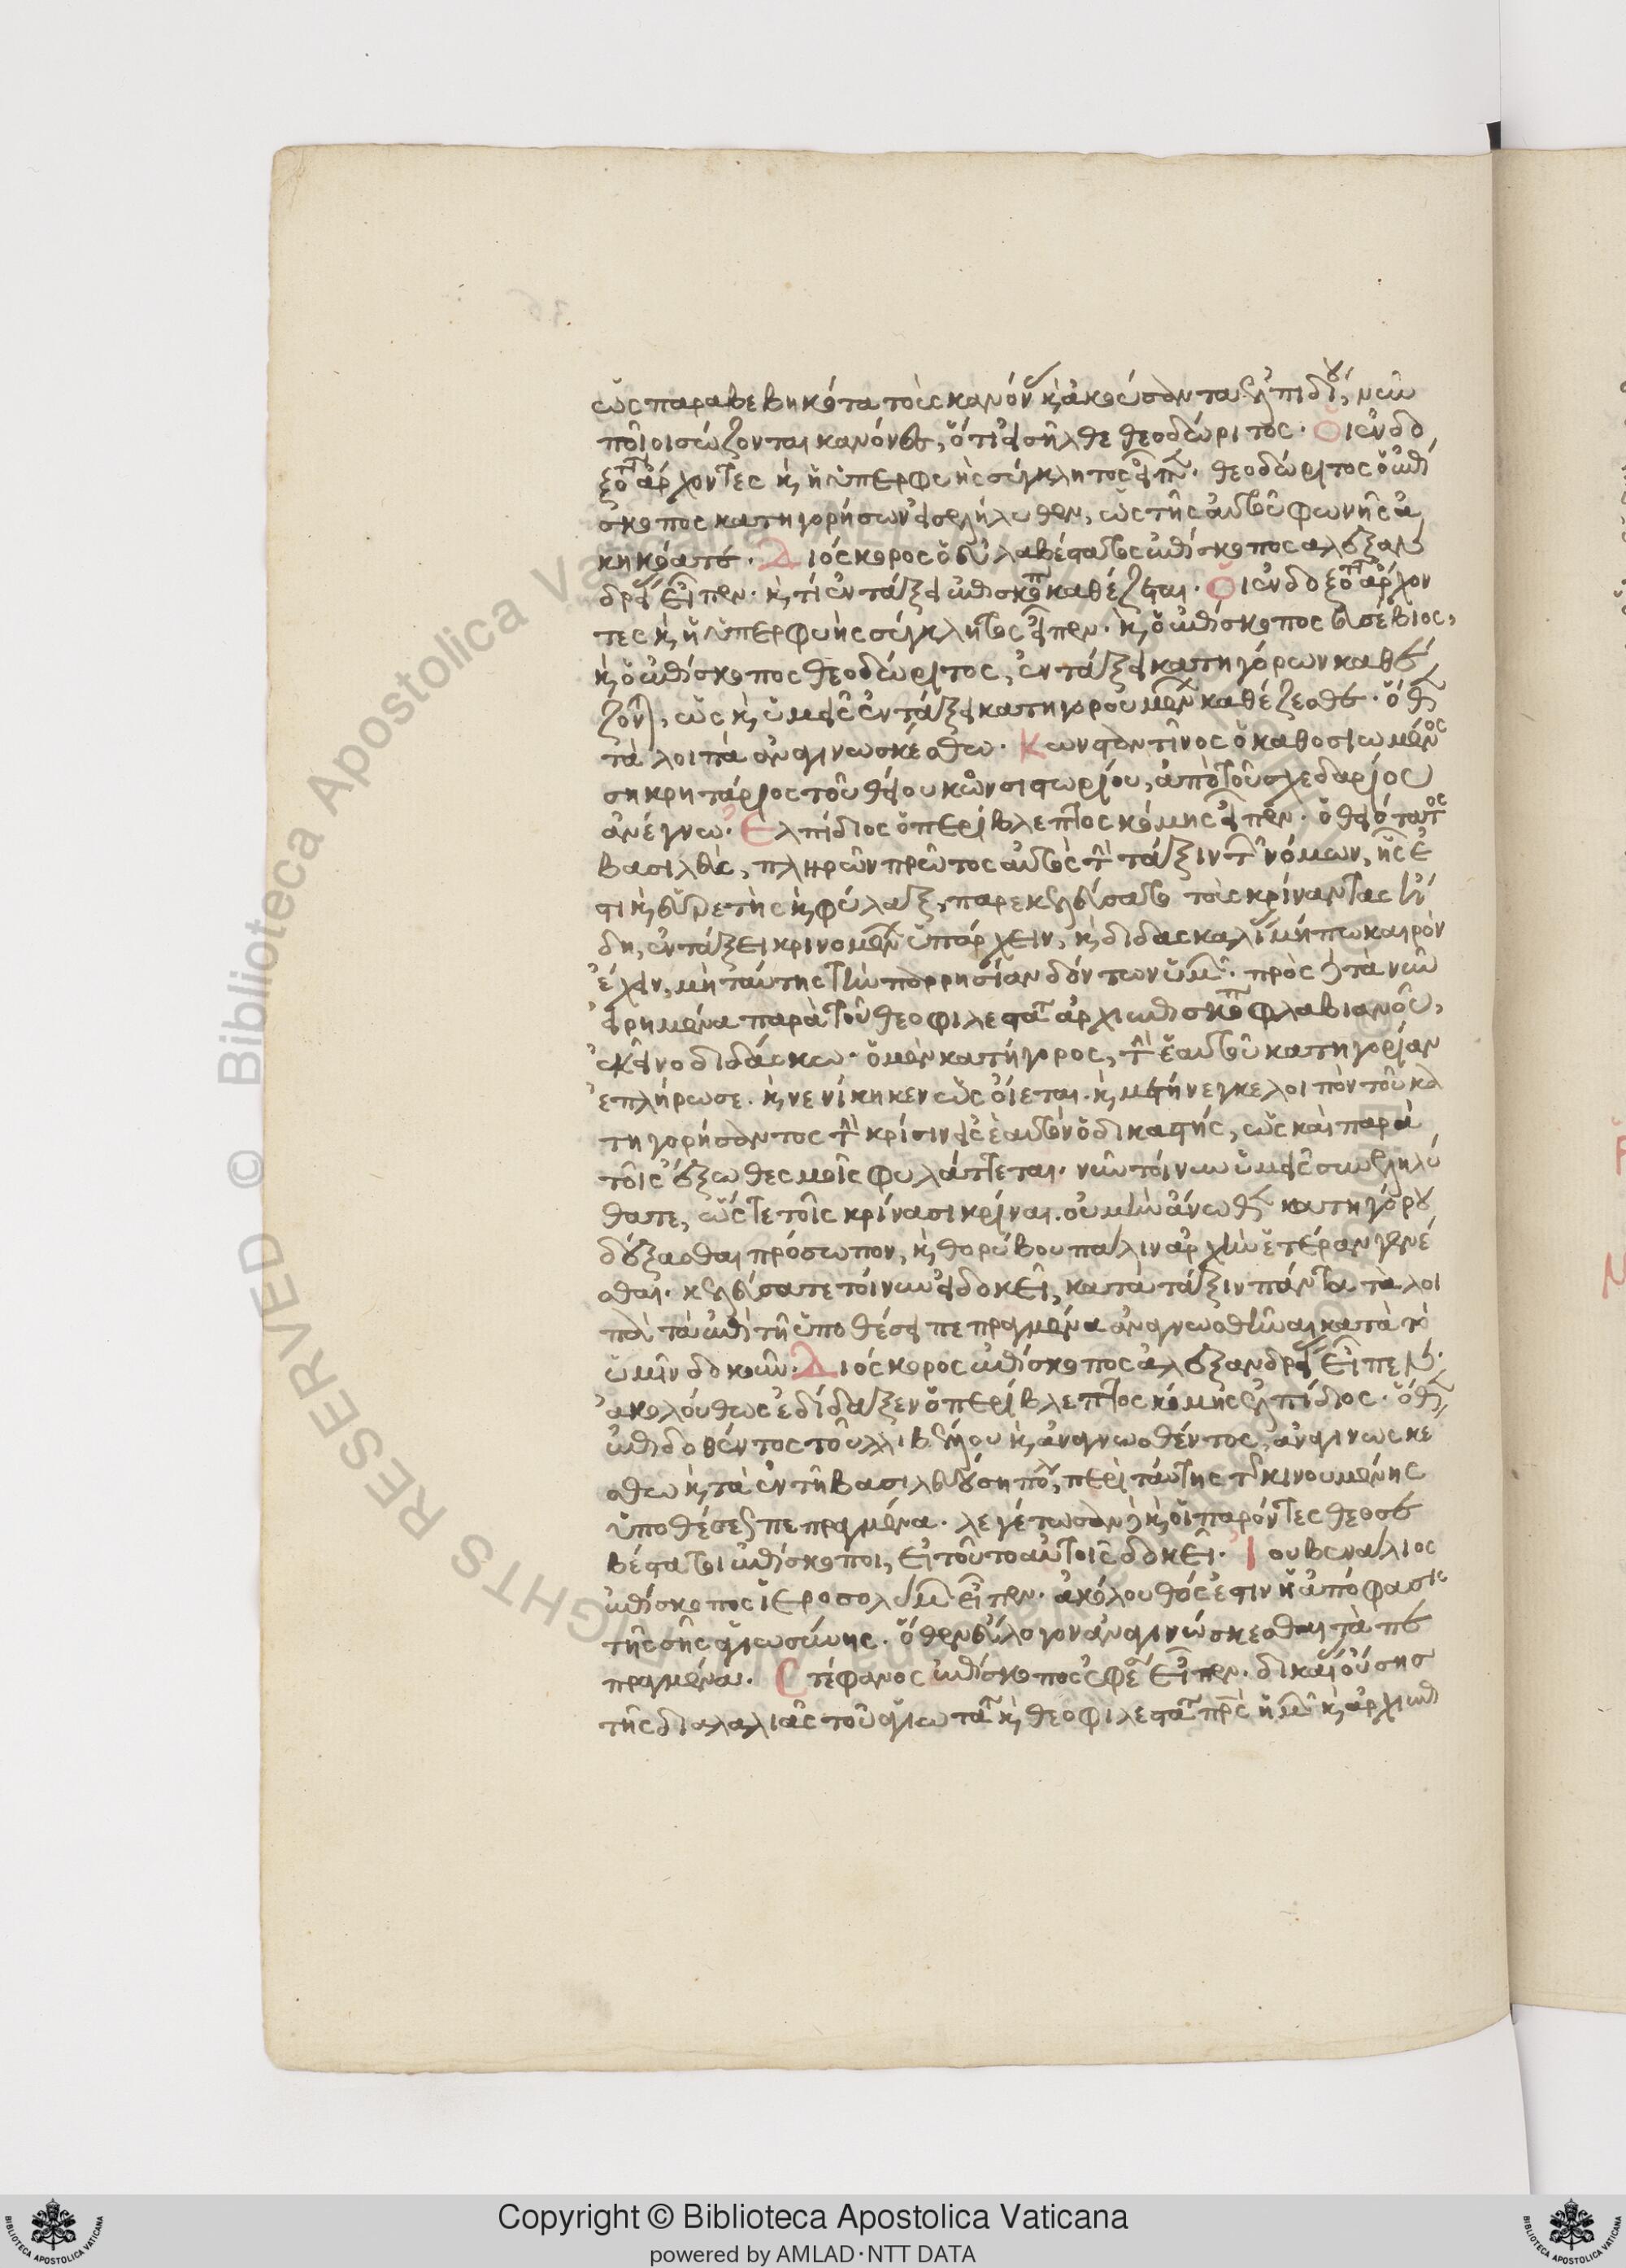 ὡς παραβεβηκότα τοὺς κανόνας καὶ ἀκούσαντα Ἐλπιδίου, νῦν
ποῖοι σώζονται κανόνες, ὅτι εἰσῆλθε θεοδώριτος. Οἱ ἐνδο
ξότ ἄρχοντες καὶ ἡ ὑπερφυὴς σύγκλητος εἶπ. θεοδώριτος ὁ ἐπί
σκοπος κατηγορήσων εἰσελήλυθεν, ὡς τῆς αὐτοῦ φωνῆς ἀ
κηκόατε. Διόσκορος ὁ εὐλαβέστατος ἐπίσκοπος αλεξαν
δρεί εἶπεν. καὶ τί ἐν τάξει ἐπισκόπ καθέζεται. Οἱ ἐνδοξότ ἄρχον
τες καὶ ἡ ὑπερφυὴς σύγκλητος εἶπεν. καὶ ὁ ἐπίσκοπος εὐσέβιος,
καὶ ὁ ἐπίσκοπος θεοδώριτος, ἐν τάξει κατηγόρων καθέ
ζονται, ὡς καὶ ὑμεῖς ἐν τάξει κατηγορουμένων καθέζεσθε. ὅθεν
τὰ λοιπὰ ἀναγινωσκέσθω. Κωνσταντῖνος ὁ καθοσιωμένος
σηκρητάριος τοῦ θείου κωνσιστωρίου, ἀπὸ τοῦ σχεδαρίου
ἀνέγνω. Ελπίδιος ὁ περίβλεπτος κόμης εἶπεν. ὁ θειότατος
βασιλεὺς, πληρῶν πρῶτος αὐτὸς τὴν τάξιν τῶν νόμων, ἧς ἐ
στι καὶ εὑρετὴς καὶ φύλαξ, παρεκελεύσατο τοὺς κρίναντας ἤ
δη, ἐν τάξει κρινομένων ὑπάρχειν, καὶ διδασκαλί μήπω καιρὸν
ἔχειν, μὴ ταύτης τὴν παρρησίαν δόντων ὑμῶν. πρὸς δὲ τὰ νῦν
εἰρημένα παρὰ τοῦ θεοφιλεστάτ ἀρχιεπισκόπ φλαβιανοῦ,
ἐκεῖνο διδάσκω. ὁ μὲν κατήγορος, τὴν ἑαυτοῦ κατηγορίαν
ἐπλήρωσε. καὶ νενίκηκεν ὡς οἴεται. καὶ μετήνεγκε λοιπὸν τοῦ κα
τηγορήσαντος τὴν κρίσιν εἰς ἑαυτὸν ὁ δικαστής, ὡς καὶ παρὰ
τοῖς ἔξω θεσμοῖς φυλάττεται. νῦν τοίνυν ὑμεῖς συνεληλύ
θατε, ὥστε τοῖς κρίνασι κρίναι. οὐ μὴν ἄνωθεν κατηγόρου
δέξασθαι πρόσωπον, καὶ θορύβου πάλιν ἀρχὴν ἑτέραν γενέ
σθαι. κελεύσατε τοίνυν εἰ δοκεῖ, κατὰ τάξιν πάντα τὰ λοι
πὰ τὰ ἐπὶ τῇ ὑποθέσει πεπραγμένα ἀναγνωσθῆναι κατὰ τὸ
ὑμῖν δοκοῦν. Διόσκορος ἐπίσκοπος ἀλεξανδρεί εἶπεν.
ἀκολούθως ἐδίδαξεν ὁ περίβλεπτος κόμης ἐλπίδιος. ὅθεν
ἐπιδοθέντος τοῦ λιβέλλου καὶ ἀναγνωσθέντος, ἀναγινωσκέ
σθω καὶ τὰ ἐν τῇ βασιλευούσῃ πόλ, περὶ ταύτης τῆς κινουμένης
ὑποθέσεως πεπραγμένα. λεγέτωσαν δὲ καὶ οἱ παρόντες θεοσε
βέστατοι ἐπίσκοποι, εἰ τοῦτο αὐτοῖς δοκεῖ. Ιουβενάλιος
ἐπίσκοπος ἱεροσολύμ εἶπεν. ἀκόλουθός ἐστιν ἡ ἀπόφασις
τῆς σῆς ἁγιωσύνης. ὅθεν εὔλογον ἀναγινώσκεσθαι τὰ πε
πραγμένα. Στέφανος ἐπίσκοπος ἐφέσ εἶπεν. δικαί οὔσης
τῆς διαλαλιᾶς τοῦ ἁγιωτάτ καὶ θεοφιλεστάτ πρς ἡμῶν καὶ ἀρχιεπι